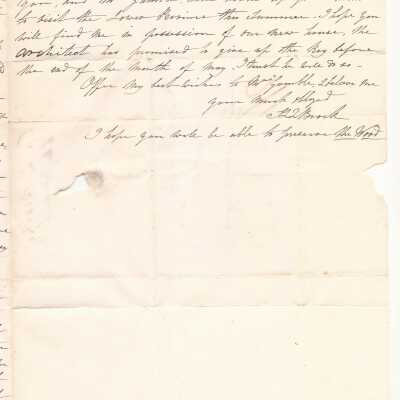 to visit the Lower Province this Summer. I hope you
will find me in possession of our new house. The
architect has promised to give up the Key before
the end of the Month of May. I trust he will do so -
Offer my best wishes to Mrs Gamble, & believe me
your Much obliged
Brock
I hope you will be able to preserve the Wood